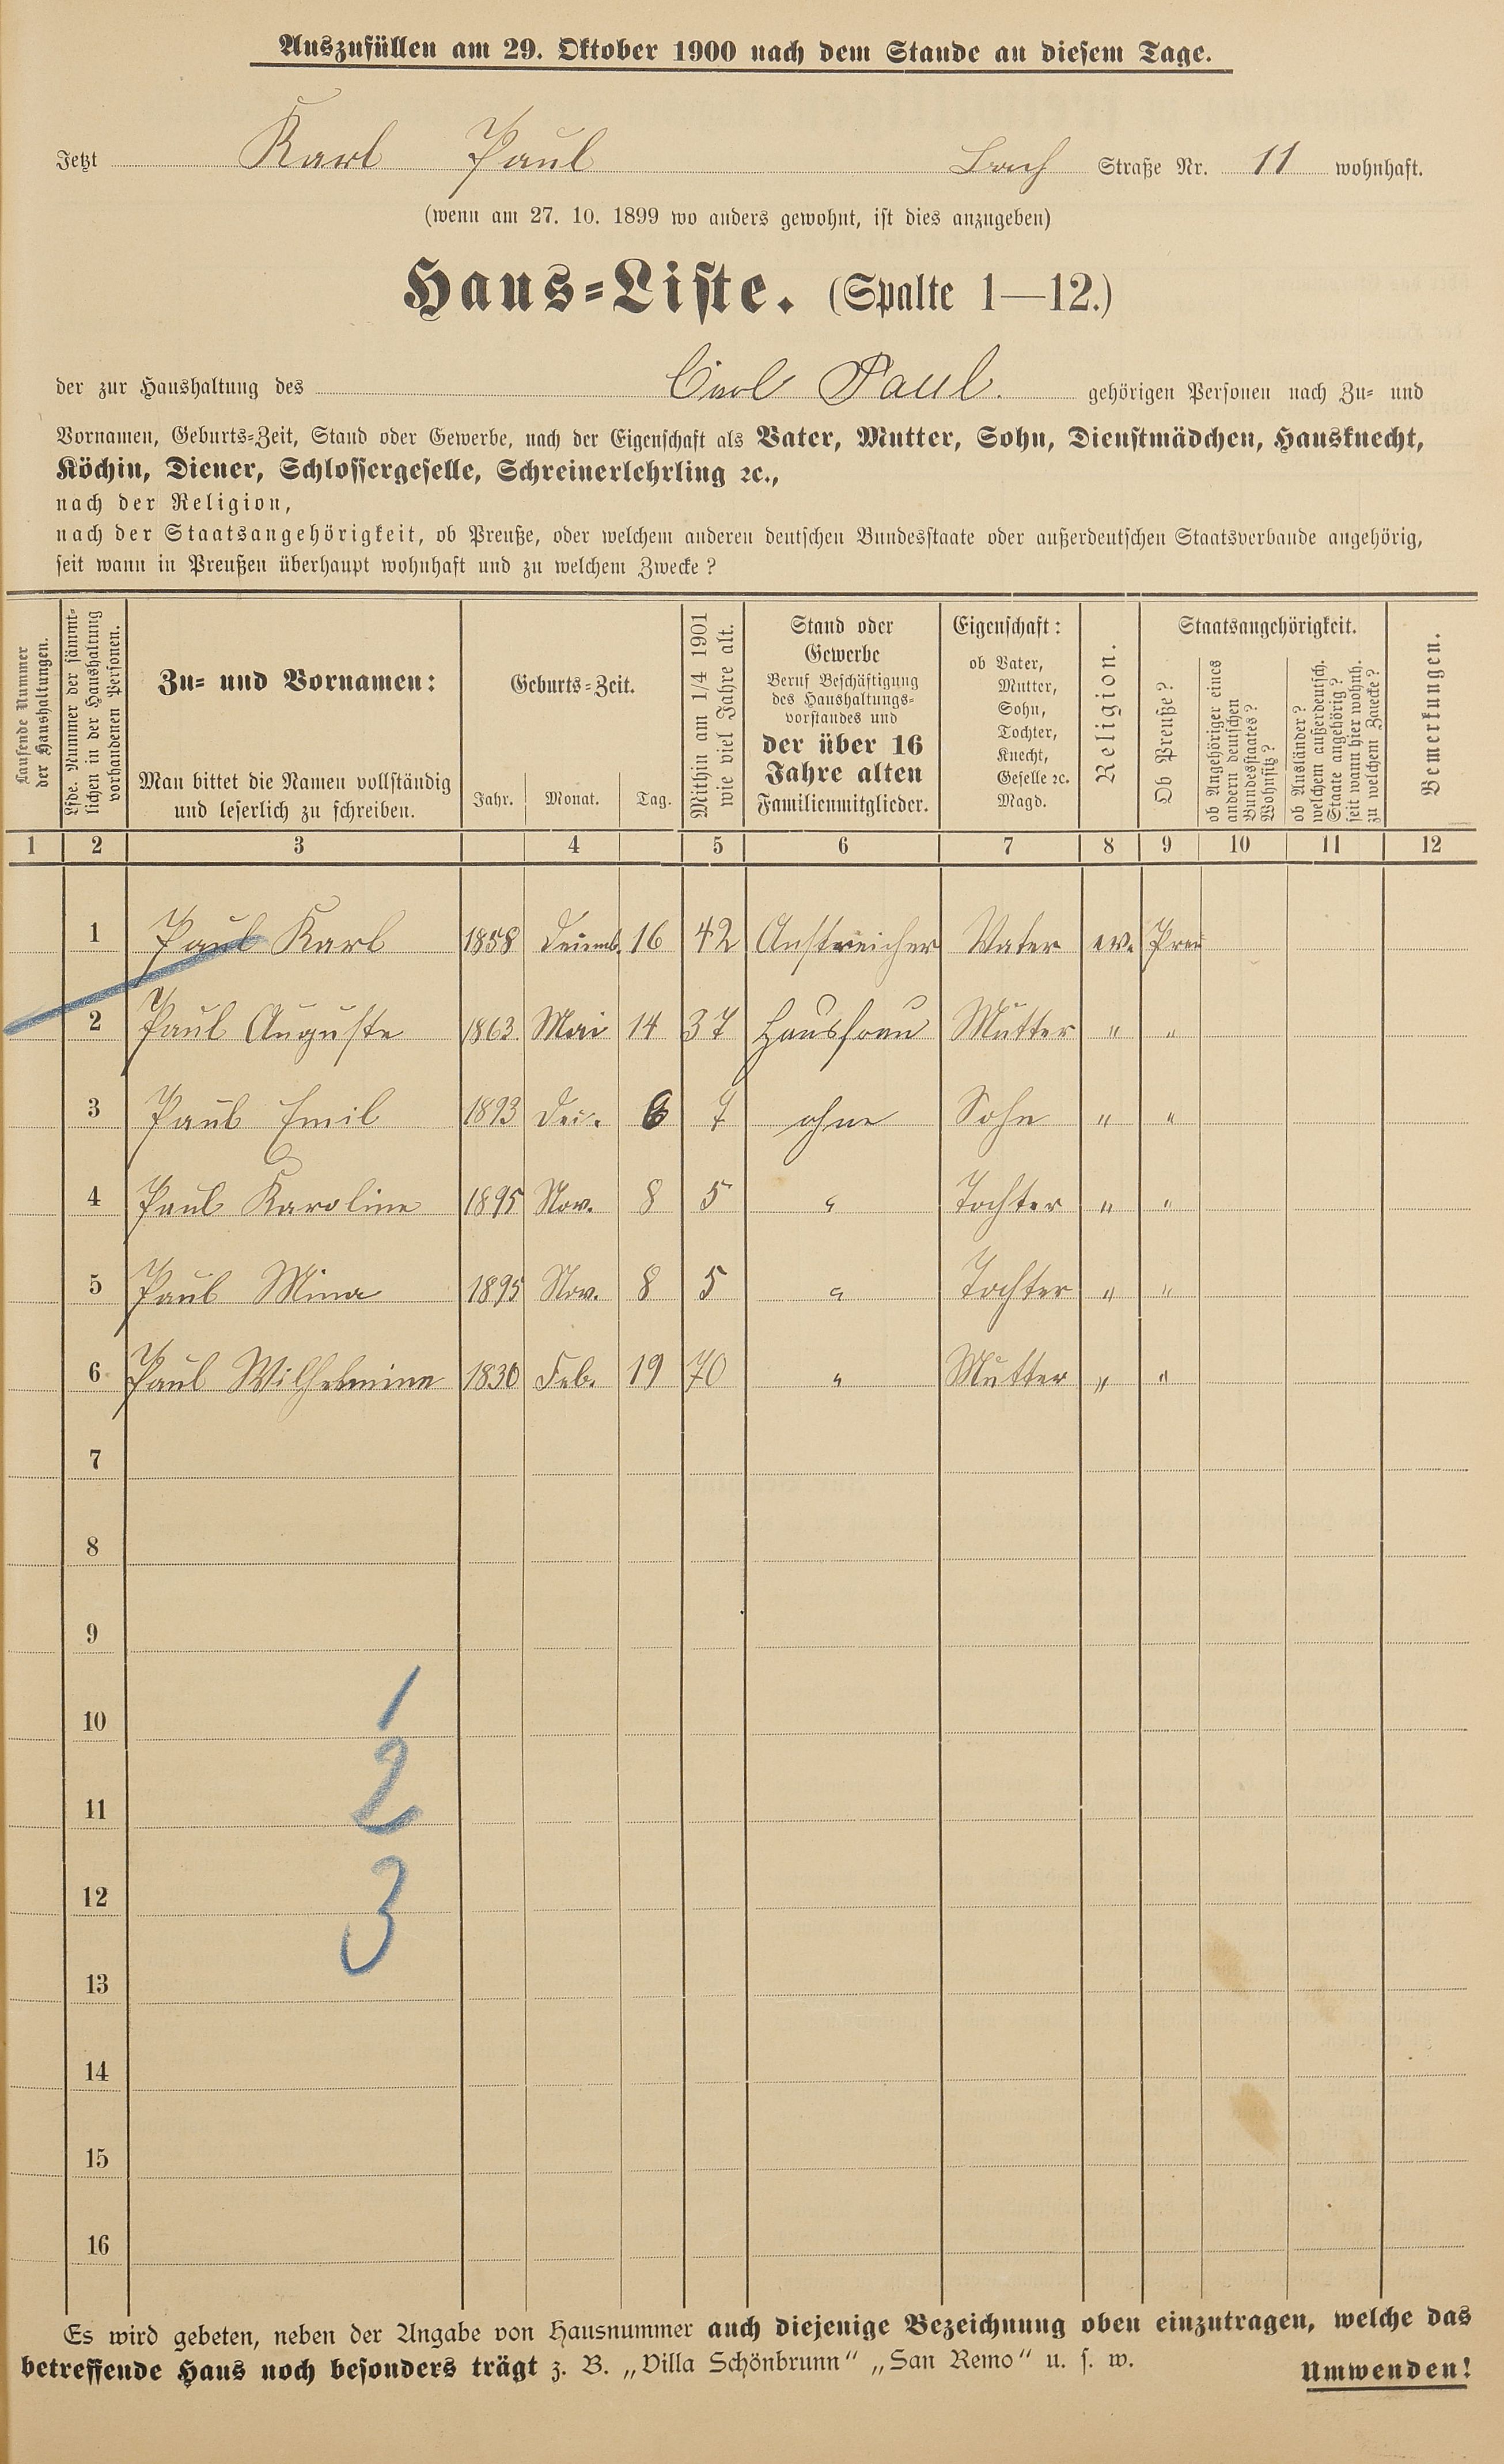 Auszufüllen am 29. Oktober 1900 nach dem Stande an diesem Tage.
Jetzt Karl Paul Bach Straße Nr. 11 wohnhaft.
(wenn am 27. 10. 1899 wo anders gewohnt, ist dies anzugeben)
Haus-Liste. (Spalte 1—12.)
der zur Haushaltung des Carl Paul. gehörigen Personen nach Zu- und
Vornamen, Geburts-Zeit, Stand oder Gewerbe, nach der Eigenschaft als Vater, Mutter, Sohn, Dienstmädchen, Hausknecht,
Köchin, Diener, Schlossergeselle, Schreinerlehrling ꝛc.,
nach der Religion,
nach der Staatsangehörigkeit, ob Preuße, oder welchem anderen deutschen Bundesstaate oder außerdeutschen Staatsverbande angehörig,
seit wann in Preußen überhaupt wohnhaft und zu welchem Zwecke?
Laufende Nummer
der Haushaltungen.
Lfde. Nummer der sämmt-
lichen in der Haushaltung
vorhandenen Personen.
Zu- und Vornamen:
Man bittet die Namen vollständig
und leserlich zu schreiben.
Geburts-Zeit.
Jahr. Monat. Tag.
Mithin am 1/4 1901
wie viel Jahre alt.
Stand oder
Gewerbe
Beruf Beschäftigung
des Haushaltungs-
vorstandes und
der über 16
Jahre alten
Familienmitglieder.
Eigenschaft:
ob Vater,
Mutter,
Sohn,
Tochter,
Knecht,
Geselle ꝛc.
Magd.
Religion.
Staatsangehörigkeit.
Ob Preuße?
ob Angehöriger eines
andern deutschen
Bundesstaates?
Wohnsitz?
ob Ausländer?
welchem außerdeutsch.
Staate angehörig?
seit wann hier wohnh.
zu welchem Zwecke?
Bemerkungen.
1 2 3 4 5 6 7 8 9 10 11 12
1 Paul Karl 1858 Dezemb. 16 42 Anstreicher Vater ev. Preu
2 Paul Auguste 1863. Mai 14 37 Hausfrau Mutter " "
3 Paul Emil 1893 Dez. 6 7 ohne Sohn " "
4 Paul Karoline 1895 Nov. 8 5 " Tochter " "
5 Paul Mina 1895 Nov. 8 5 " Tochter " "
6 Paul Wilhelmine 1830 Feb. 19 70 " Mutter " "
7
8
9
10 1
11 2
12 3
13
14
15
16
Es wird gebeten, neben der Angabe von Hausnummer auch diejenige Bezeichnung oben einzutragen, welche das
betreffende Haus noch besonders trägt z. B. „Villa Schönbrunn“ „San Remo“ u. s. w. Umwenden!